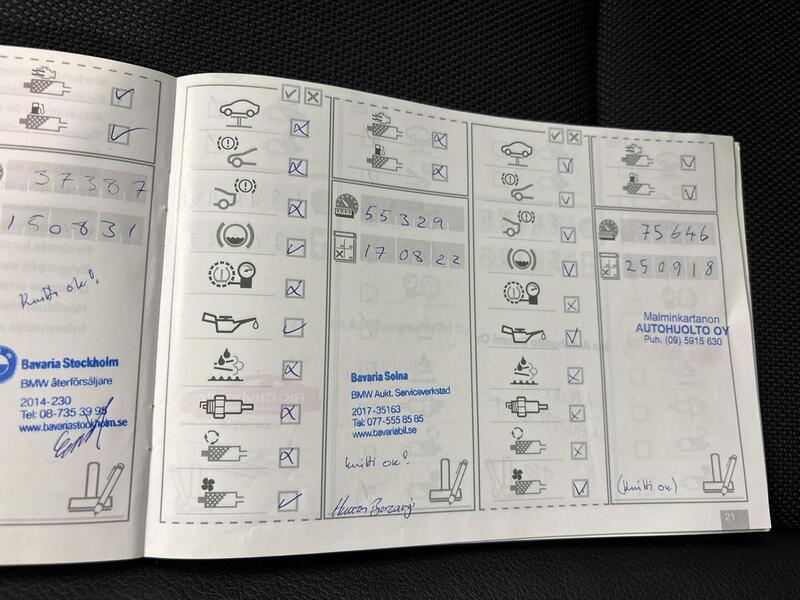 37387
150831
kuitti ok!
Bavaria Stockholm
BMW återförsäljare
2014-230
Tel: 08-735 39 95
www.bavariastockholm.se
55329
170822
Bavaria Solna
BMW Aukt. Serviceverkstad
2017-35163
Tel: 077-555 85 85
www.bavariabil.se
kuitti ok!
75646
250918
Malminkartanon
AUTOHUOLTO OY
Puh. (09) 5915 630
(kuitti ok)
21